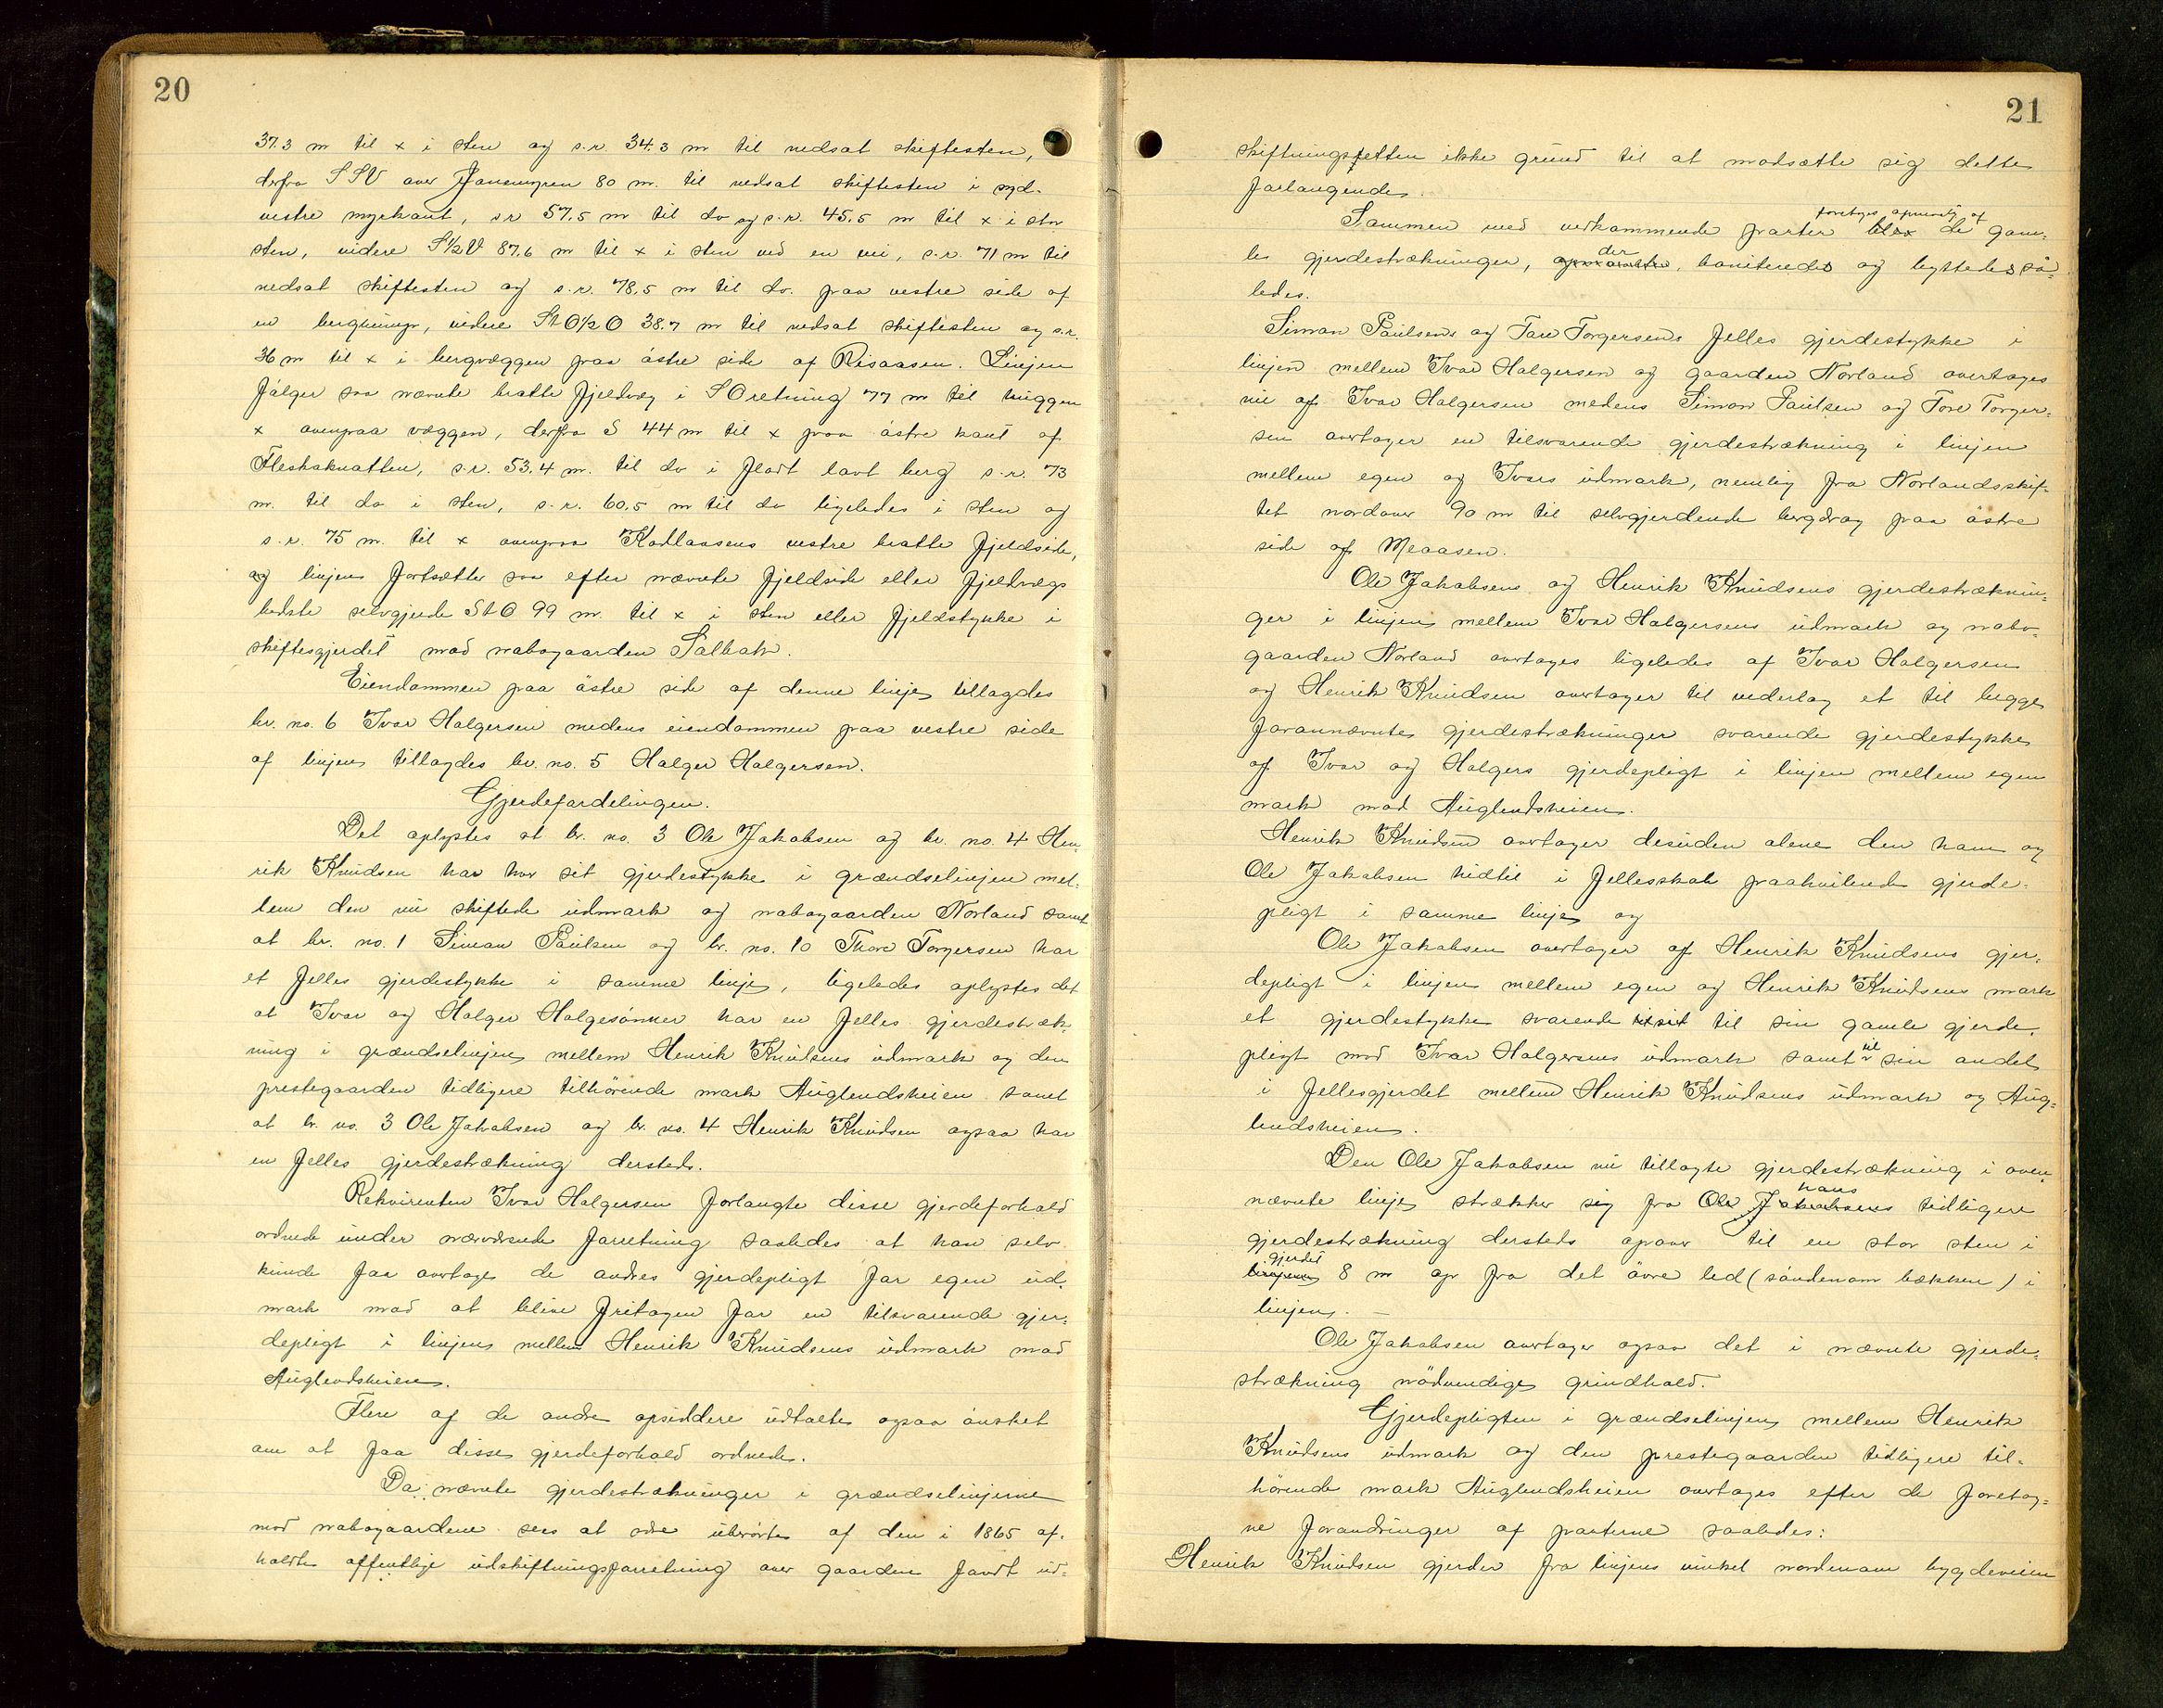 20
37.3 m til x i sten og s.r. 34.3 m til nedsat skiftesten,
derfra SSV over Jonsmyren 80 m. til nedsat skiftesten i syd-
vestre myrkant, s.r. 57,5 m til do og s.r. 45.5 m til x i stor
sten, videre S½V 87.6 m til x i sten ved en vei, s.r. 71 m til
nedsat skiftesten og s.r. 78,5 m til do. paa vestre side af
en bergknup, videre StO½O 38.7 m til nedsat skiftesten og s.r.
36 m til x i bergvæggen paa östre side af Risaasen. Linjen
fölger saa nævnte bratte fjeldvæg i SOretning 77 m til huggen
x ovenpaa væggen, derfra S 44 m til x paa östre kant af
Fleskeknatten, s.r. 53.4 m. til do i fladt lavt berg s.r. 73
m. til do i sten, s.r. 60.5 m til do ligeledes i sten og
s.r. 75 m. til x ovenpaa Kadlaasens vestre bratte fjeldside,
og linjen fortsætter saa efter nævnte fjeldside eller fjeldvægs
bedste selvgjerde StO 99 m. til x i sten eller fjeldstykke i
skiftesgjerdet mod nabogaarden Salbak.
Eiendommen paa östre side af denne linje tillagdes
br. no. 6 Ivar Holgersen medens eiendommen paa vestre side
af linjen tillagdes br. no. 5 Holger Holgersen.
Gjerdefordelingen.
Det oplystes at br. no. 3 Ole Jakobsen og br. no. 4 Hen-
rik Knudsen har hver sit gjerdestykke i grændselinjen mel-
lem den nu skiftede udmark og nabogaarden Norland samt
at br. no. 1 Simon Paulsen og br. no. 10 Thore Torgersen har
et felles gjerdestykke i samme linje, ligeledes oplystes det
at Ivar og Holger Holgesönner har en felles gjerdestræk-
ning i grændselinjen mellem Henrik Knudsens udmark og den
prestegaarden tidligere tilhörende mark Auglendsheien samt
at br. no. 3 Ole Jakobsen og br. no. 4 Henrik Knudsen ogsaa har
en felles gjerdestrækning dersteds.
Rekvirenten Ivar Holgersen forlangte disse gjerdeforhold
ordnede under nærværende forretning saaledes at han selv
kunde faa overtage de andres gjerdepligt for egen ud-
mark mod at blive fritagen for en tilsvarende gjer-
depligt i linjen mellem Henrik Knudsens udmark mod
Auglendsheien.
Flere af de andre opsiddere udtalte ogsaa önsket
om at faa disse gjerdeforhold ordnede.
Da nævnte gjerdestrækninger i grændselinjerne
mod nabogaardene sees at være uberörte af den i 1865 af-
holdte offentlige udskiftningsforretning over gaarden fandt ud-
21
skiftningsretten ikke grund til at modsætte sig dette
forlangende.
Sammen med vedkommende parter foretoges opmaaling af de gam-
le gjerdestrækninger, der boniteredes og byttedes så-
ledes.
Simon Paulsens og Tore Torgersens felles gjerdestykke i
linjen mellem Ivar Holgersen og gaarden Norland overtages
nu af Ivar Holgersen medens Simon Paulsen og Tore Torger-
sen overtager en tilsvarende gjerdestrækning i linjen
mellem egen og Ivars udmark, nemlig fra Norlandsskif-
tet nordover 90 m til selvgjerdende bergdrag paa östre
side af Meaasen.
Ole Jakobsens og Henrik Knudsens gjerdestræknin-
ger i linjen mellem Ivar Holgersens udmark og nabo-
gaarden Norland overtages ligeledes af Ivar Holgersen
og Henrik Knudsen overtager til vederlag et til begge
forannævnte gjerdestrækninger svarende gjerdestykke
af Ivar og Holgers gjerdepligt i linjen mellem egen
mark mod Auglendsheien.
Henrik Knudsen overtager desuden alene den ham og
Ole Jakobsen hidtil i fellesskab paahvilende gjerde-
pligt i samme linje og
Ole Jakobsen overtager af Henrik Knudsens gjer-
depligt i linjen mellem egen og Henrik Knudsens mark
et gjerdestykke svarende til sin gamle gjerde-
pligt mod Ivar Holgersens udmark samt til sin andel
i fellesgjerdet mellem Henrik Knudsens udmark og Aug-
lendsheien.
Den Ole Jakobsen nu tillagte gjerdestrækning i oven-
nævnte linje strækker sig fra hans tidligere
gjerdestrækning dersteds opover til en stor sten i
gjerdet 8 m op fra det övre led (söndenom bækken) i
linjen. —
Ole Jakobsen overtager ogsaa det i nævnte gjerde-
strækning nödvendige grindhold.
Gjerdepligten i grændselinjen mellem Henrik
Knudsens udmark og den prestegaarden tidligere til-
hörende mark Auglendsheien overtages efter de foretag-
ne forandringer af parterne saaledes:
Henrik Knudsen gjerder fra linjens vinkel nordenom bygdeveien